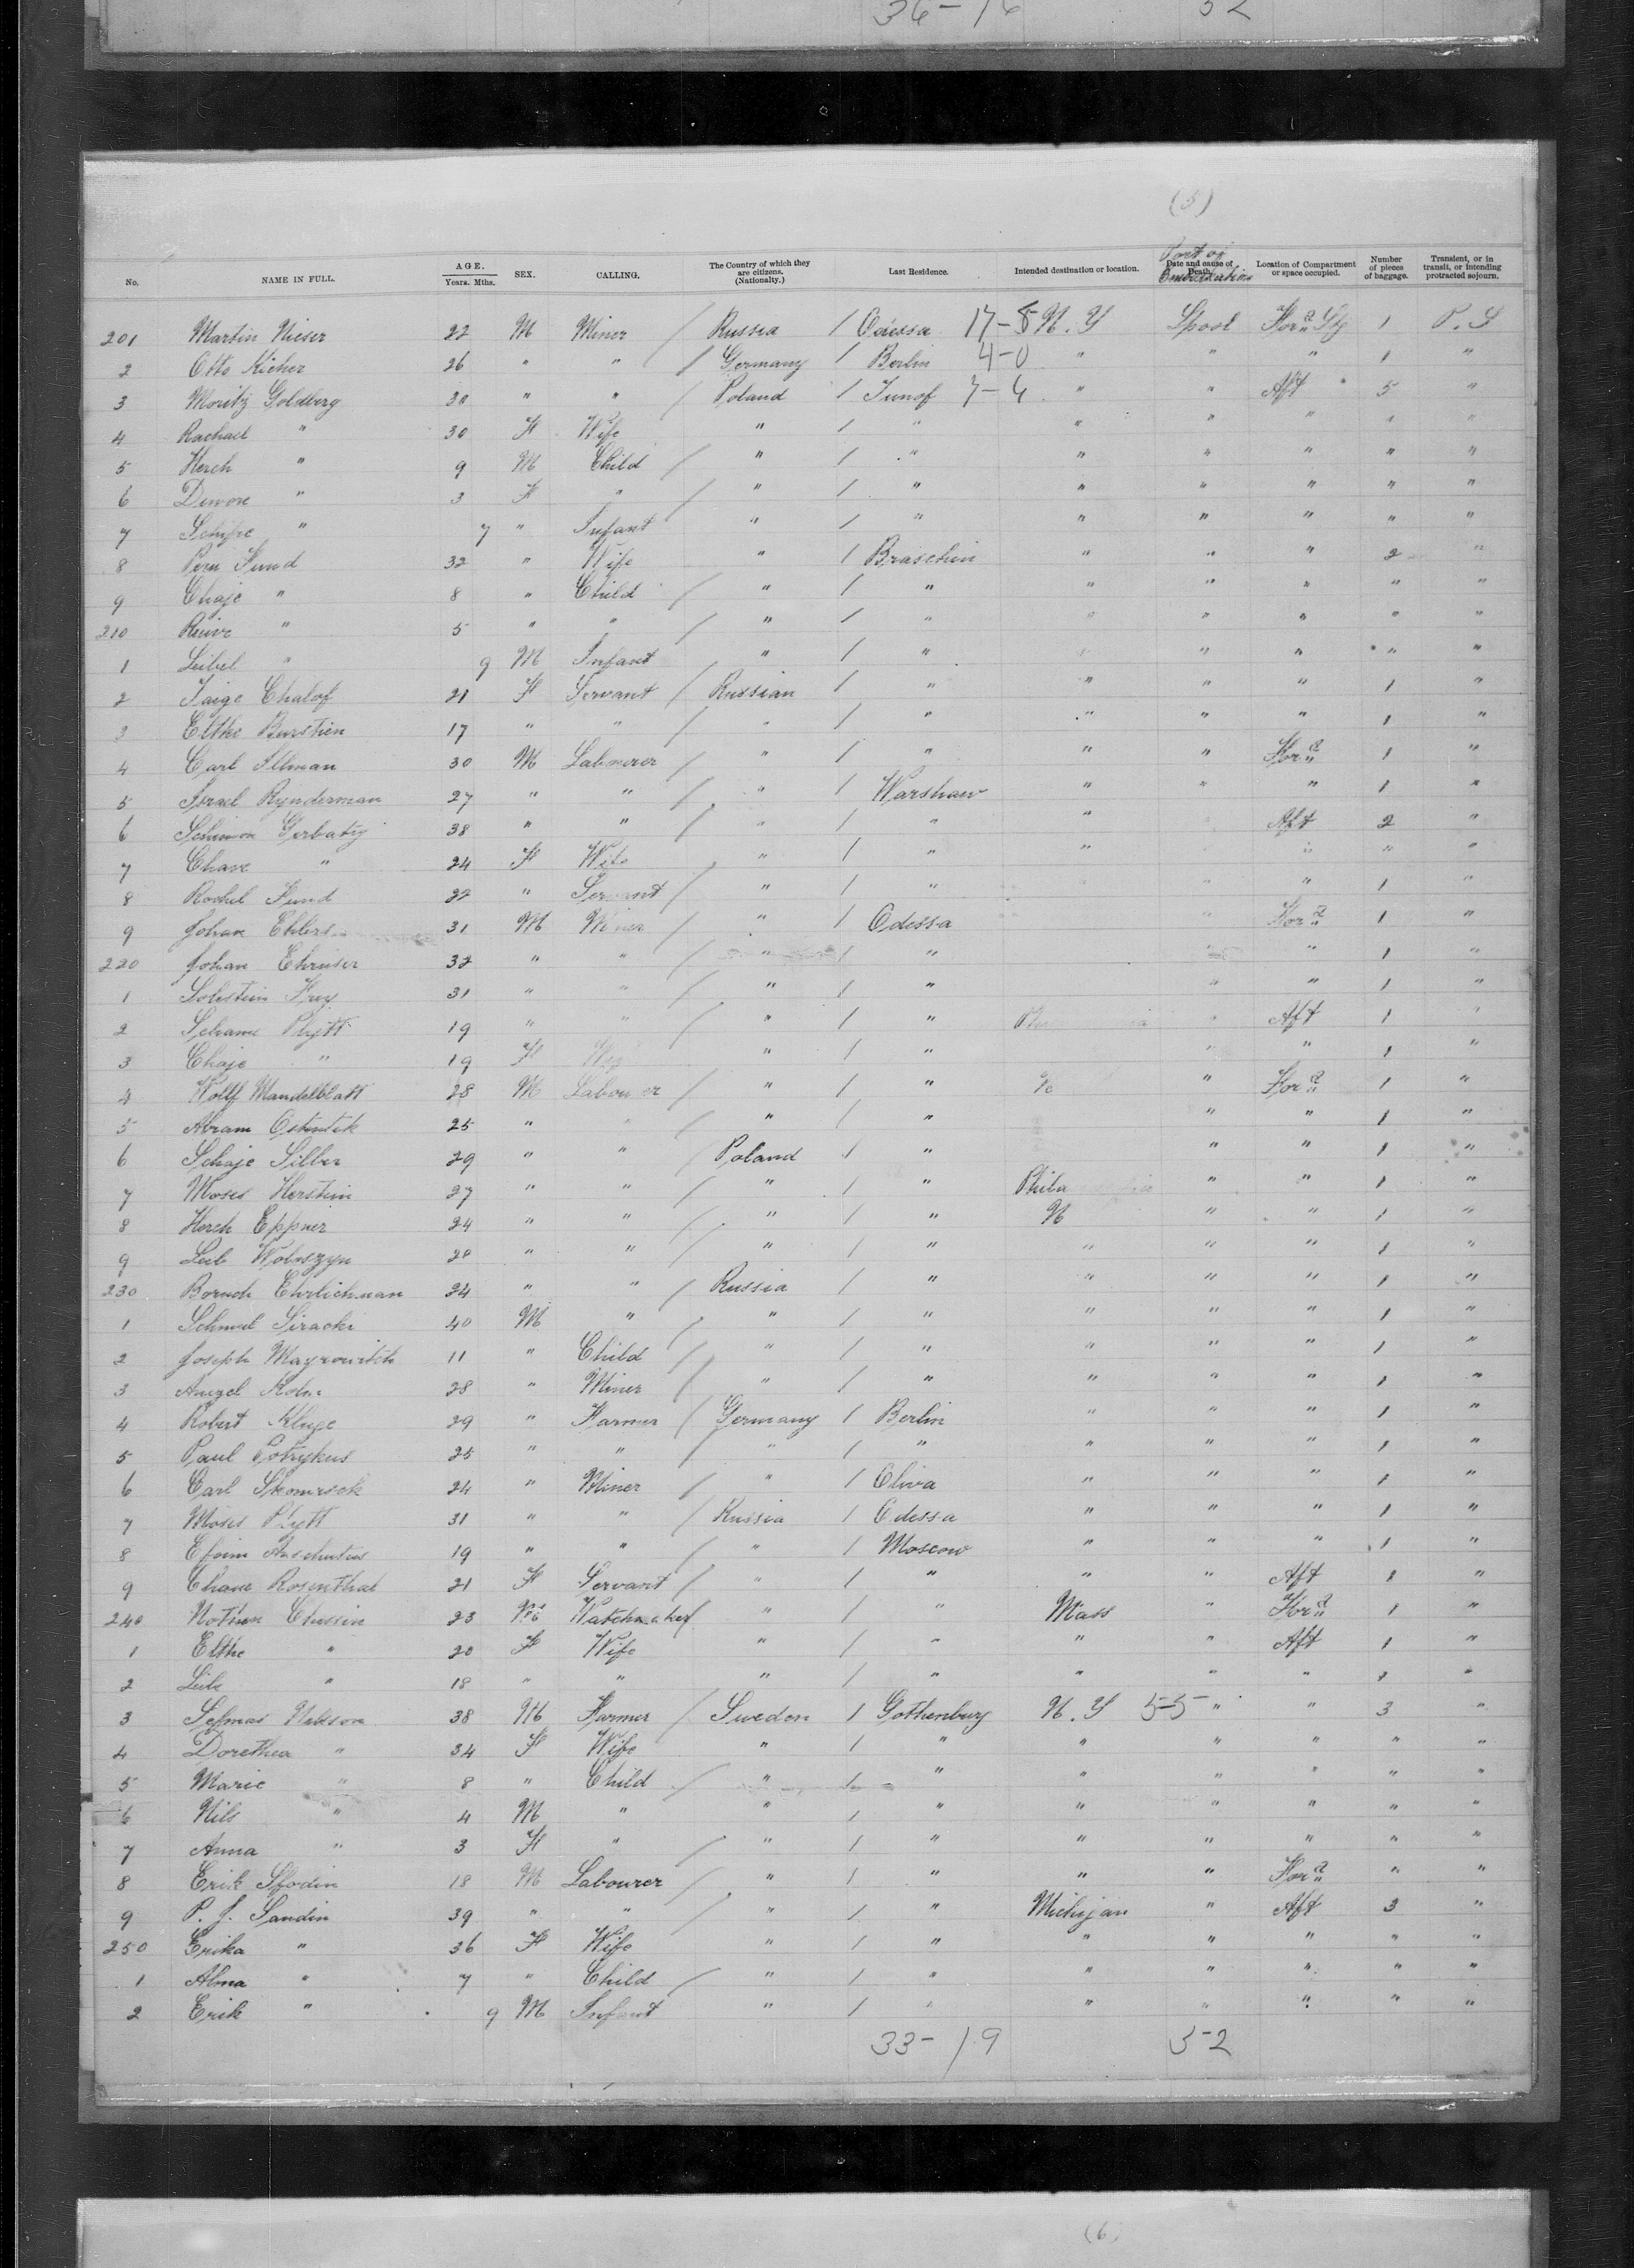 36-16 52
(5)
No. NAME IN FULL. AGE. Years. Mths. SEX. CALLING. The Country of which they are citizens. (Nationalty.) Last Residence. Intended destination or location. Port of Embarkation Date and cause of Death. Location of Compartment or space occupied. Number of pieces of baggage. Transient, or in transit, or intending protracted sojourn.
201 Martin Nieser 22 M Miner / Russia / Odessa 17-8 N.Y Spool For'd Stg 1 P.S
2 Otto Kicher 26 " " / Germany / Berlin 4-0 " " " 1 "
3 Moritz Goldberg 30 " " / Poland / Junof 7-4 " " Aft " 5 "
4 Rachael " 30 F Wife " / " " " " " "
5 Herch " 9 M Child / " / " " " " " "
6 " 3 F " / " / " " " " " "
7 " 7 " Infant " / " " " " " "
8 Fund 32 " Wife " / Braschin " " " 2 "
9 Chaje " 8 " Child / " / " " " " " "
210 " 5 " " / " / " " " " " "
1 Leibel " 9 M Infant " / " " " " "
2 Taige Chalof 21 F Servant / Russian / " " " " 1 "
3 Elthe Burstien 17 " " / " / " " " " 1 "
4 Carl Illman 30 M Labourer / " / " " " For'd 1 "
5 Israel Rynderman 27 " " / " / Warshaw " " " 1 "
6 Gerbatij 38 " " / " / " " Aft 2 "
7 Chave " 24 F Wife " / " " " " "
8 Rochel Fund 22 " Servant / " / " " " 1 "
9 Johan Ehlers 31 M Miner / " / Odessa " For'd 1 "
220 Johan 32 " " / " / " " " 1 "
1 Frey 31 " " / " / " " " 1 "
2 Plytt 19 " " / " / " " Aft 1 "
3 Chaje " 19 F " / " " " 1 "
4 Wolff Mandelblatt 28 M Labourer / " / " N " For'd 1 "
5 Abram 25 " " / " / " " " 1 "
6 Schaje Silber 29 " " Poland / " " " 1 "
7 Moses Herstein 27 " " / " / " Phila " " 1 "
8 Herch Eppner 24 " " / " / " N " " 1 "
9 Leib Woloszyn 28 " " / " / " " " " 1 "
230 Boruch Ehrlichman 24 " " / Russia / " " " " 1 "
1 Schmul Siracki 40 M " / " / " " " " 1 "
2 Joseph Mayrowitch 11 " Child / " / " " " " 1 "
3 28 " Miner / " / " " " " 1 "
4 Robert Kluge 29 " Farmer / Germany / Berlin " " " 1 "
5 Paul Potrykus 25 " " / " / " " " " 1 "
6 Carl 24 " Miner / " / Oliva " " " 1 "
7 Moses Plytt 31 " " / Russia / Odessa " " " 1 "
8 Efoim 19 " " / " / Moscow " " " 1 "
9 Chane Rosenthal 21 F Servant / " / " " " Aft 1 "
240 Nothen Chessin 23 M Watchmaker / " / " Mass " For'd 1 "
1 Elthe " 20 F Wife " / " " " Aft 1 "
2 Leib " 18 " " " / " " " " 1 "
3 Selmas Nilsson 38 M Farmer / Sweden / Gothenburg N.Y 5-5 " " 3 "
4 Dorethea " 34 F Wife " / " " " " " "
5 Marie " 8 " Child / " / " " " " " "
6 Nils " 4 M " " / " " " " " "
7 Anna " 3 F " / " / " " " " " "
8 Erik 18 M Labourer / " / " " " For'd " "
9 P. J. Sandin 39 " " / " / " Michigan " Aft 3 "
250 Erika " 36 F Wife " / " " " " " "
1 Alma " 7 " Child / " / " " " " " "
2 Erik " 9 M Infant " / " " " " " "
33-19 52
(6)